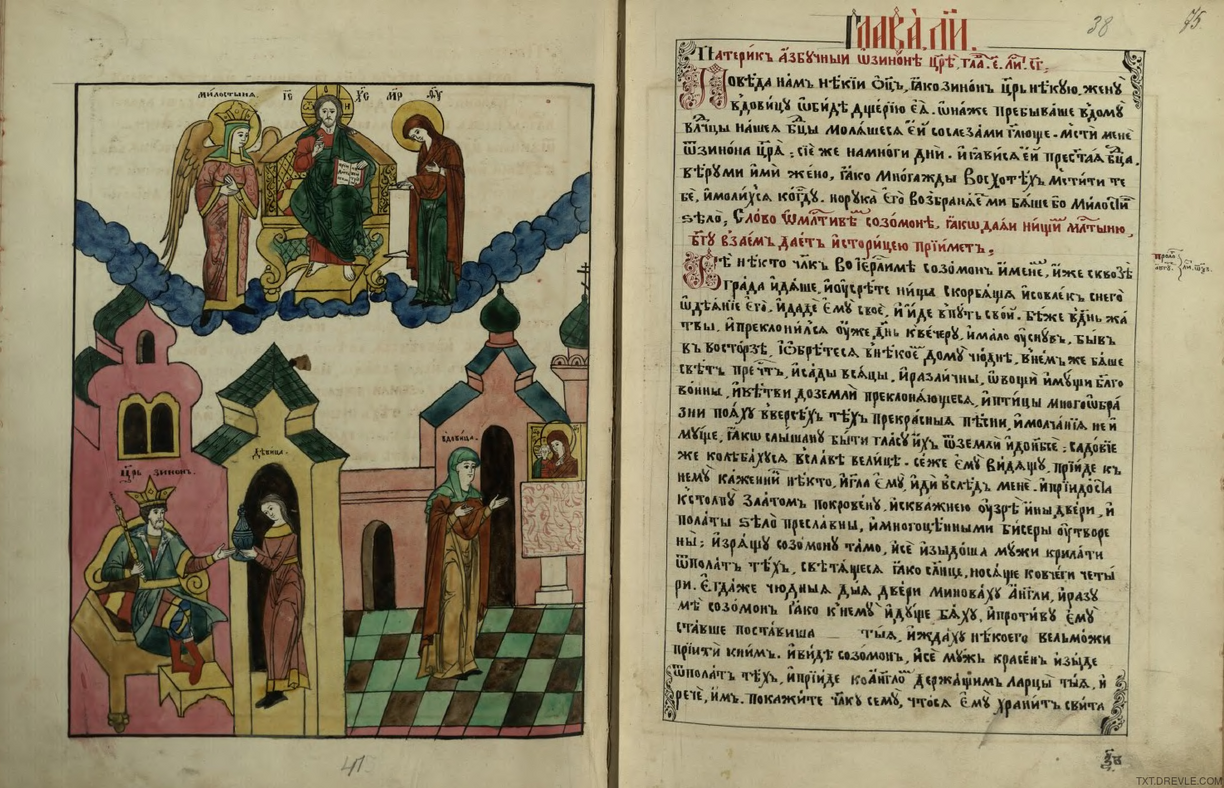 милостыня.
І҃С Х҃С
М҃Р Ѳ҃У
О Н
дѣвица.
вдовица.
Царь зинонъ.
41
Глава, л҃и.
38
75
Патери́къ а҆збучныи ѡ҆ зино́нѣ цр҃ѣ, гла. є҃. ли.
Повѣ́да на́мъ нѣ́кїи ѻ҆ц҃ъ, ꙗ҆́ко зино́нъ цр҃ь нѣ́кую, жену̀
вдови́цу ѡ҆би́дѣ дще́рїю є҆ѧ̀. ѻ҆на́же пребыва́ше вдому̀
влⷣчцы на́шеѧ бц҃ы молѧ́щесѧ є҆́й сослеза́ми гл҃юще. мсти́ менѐ
ѿзино́на цр҃ѧ̀: сїе́ же намно́ги дни̑. и҆ꙗ҆ви́сѧ є҆́й прест҃а́ѧ бц҃а.
вѣ́руми и҆мѝ же́но, ꙗ҆́ко мно́гажды восхотѣ́хъ мсти́ти те
бѐ, и҆моли́хсѧ ко бг҃у. но рука̀ є҆гѡ̀ возбранѧ́еми бѧ́ше бо ми́лостивъ
ѕѣлѡ̀, Сло́во ѡ҆мл҃тивѣ созо́монѣ, ꙗ҆́кѡ даѧ́и ни́щимъ мл҃тыню,
бг҃у взае́мъ дае́тъ и҆сто́рицею прїи́метъ.
Бѣ̀ нѣ́кто чл҃къ во і҆ер҃ли́мѣ созо́монъ и҆́менемъ, и҆́же сквозѣ̀
гра́да и҆дѧ́ше, и҆ѹ҆срѣ́те ни́ща скорбѧ́ща и҆совле́къ снегѡ̀
ѡ҆дѣѧ́нїе є҆гѡ̀, и҆дадѐ є҆мꙋ̀ своѐ, и҆ и҆́де впу́ть сво́й. бѣ́же вдн҃ь жа́
твы, и҆преклони́лсѧ ѹ҆́же дн҃ь кве́черу, и҆ма́ло ѹ҆снꙋ́въ, бы́въ
въ восто́рзѣ, и҆ѡ҆брѣ́тесѧ внѣ́коемъ дому̀ чю́днѣ, вне́мъже бѧ́ше
свѣ́тъ пречⷭ҇тъ, и҆са́ды всѧ́цы, и҆разли́чны, ѻ҆вощїи и҆му́щи бл҃го
во́нны, и҆вѣ́тви доземлѝ преклонѧ́ющесѧ, и҆пти́цы многоѡ҆бра́
зни поѧ́ху вверсѣ́хъ тѣ́хъ прекра́сныѧ пѣ́сни, и҆молча́нїѧ не и
му́ще, ꙗ҆́кѡ слы́шану бы́ти гла́су и҆́хъ ѿземлѝ и҆донб҃се: садо́вїе
же колѣба́хусѧ всла́вѣ вели́цѣ. се́же є҆мꙋ̀ ви́дѧщу, прїи́де къ
нему̀ каже́никъ нѣ́кто, и҆гл҃а є҆мꙋ̀, и҆дѝ вслѣ́дъ менѐ. и҆прїидо́ста
кстолпу̀ зла́томъ покрове́ну, и҆сква́жнею ѹ҆зрѣ̀ и҆ны̀ две́ри, и҆
пола́ты ѕѣлѡ̀ пресла́вны, и҆многоцѣ́нными би́серы ѹ҆тво́ре
ны: и҆зрѧ́щу созо́мону та́мо, и҆сѐ и҆зыдо́ша му́жи крила́ти
ѿпола́тъ тѣ́хъ, свѣтѧ́щесѧ ꙗ҆́ко сл҃нце, носѧ́ще ковче́ги четы́
ри. Є҆гда́же чю́дныѧ дыѧ две́ри минова́ху а҆́гг҃ли, и҆разу
мѣ̀ созо́монъ ꙗ҆́ко кнему̀ и҆ду́ще бѧ́ху, и҆проти́ву є҆мꙋ̀
ста́вше поста́виша тыѧ̑, и҆жда́ху нѣ́коего вельмо́жи
прїитѝ кни́мъ. и҆ви́дѣ созо́монъ, и҆сѐ му́жъ красе́нъ и҆зы́де
ѿпола́тъ тѣ́хъ, и҆прїи́де ко а҆́гг҃ломъ держа́щимъ ларцы̀ тыѧ̑, и҆
речѐ, и҆́мъ. покажи́те чл҃ку сему̀, что́сѧ є҆мꙋ̀ храни́тъ свита
TXT.DREVLE.COM